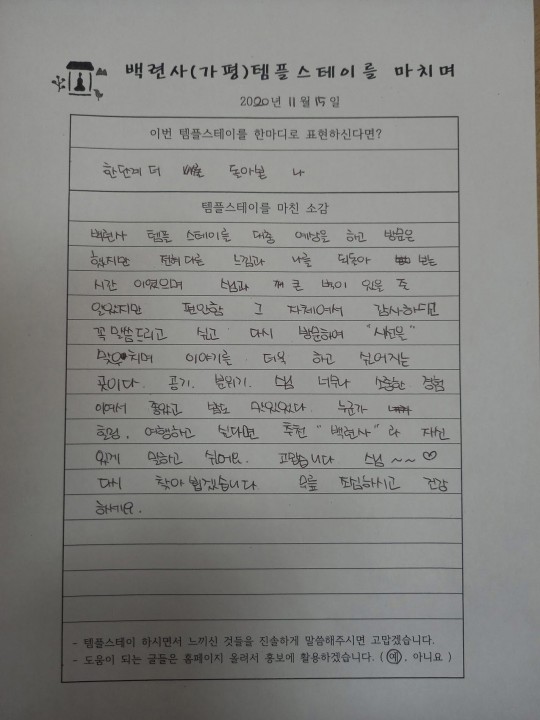 백련사(가평)템플스테이를 마치며
2020년 11월 15일
이번 템플스테이를 한마디로 표현하신다면?
한단계 더 돌아볼 나
템플스테이를 마친 소감
백련사 템플 스테이를 대충 예상을 하고 방문은
했지만 전혀 다른 느낌과 나를 되돌아 보는
시간 이였으며 스님과 큰 벽이 있을 줄
알았지만 편안함 그 자체여서 감사하다면
꼭 말씀드리고 싶고 다시 방문하여 "시선을"
맞추치며 이야기를 더욱 하고 싶어지는
곳이다. 공기. 분위기. 스님 너무나 소중한 경험
이여서 좋았고 밥도 맛있었다. 누군가
힐링, 여행하고 싶다면 추천 "백련사" 라 자신
있게 말하고 싶어요. 고맙습니다 스님 ~~ ♡
다시 찾아 뵙겠습니다 조심하시고 건강
하세요.
- 템플스테이 하시면서 느끼신 것들을 진솔하게 말씀해주시면 고맙겠습니다.
- 도움이 되는 글들은 홈페이지 올려서 홍보에 활용하겠습니다. ( 예, 아니요 )